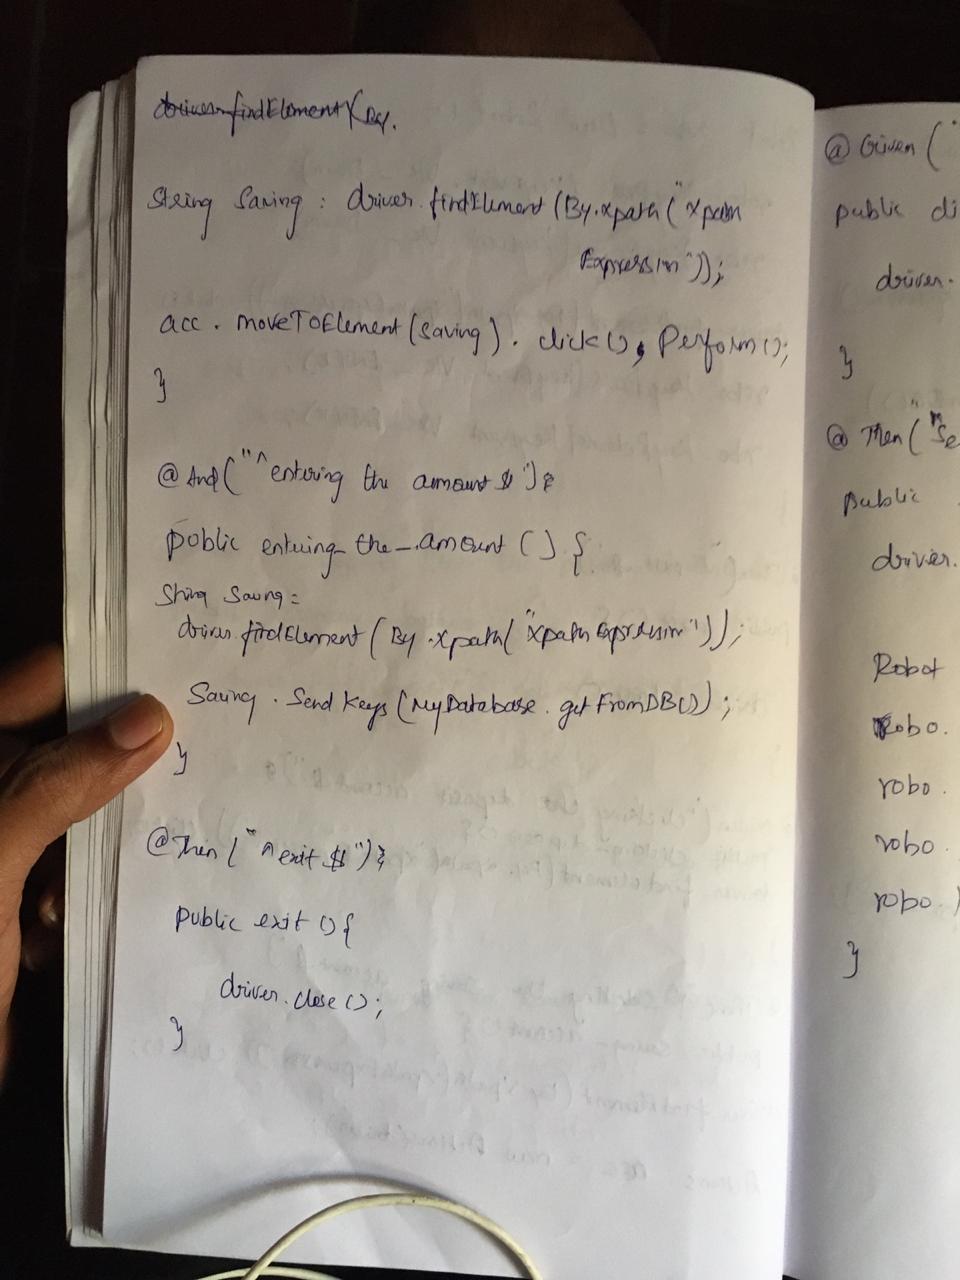 driver.findElement(By.
String Saving : driver.findElement(By.xpath("xpath
Expression"));
acc . moveToElement(saving) . click(), Perform();
}
@And("^entering the amount $"){
public entering_the_amount () {
String Saving =
driver.findElement(By.xpath("xpath Expression"));
Saving . Send Keys (MyDatabase.getFromDB());
}
@Then ("^exit $"){
public exit () {
driver.close();
}
@Given ("
public di
driver.
}
@Then ("Se
public
driver.
Robot
Robo.
robo.
robo.
robo.
}